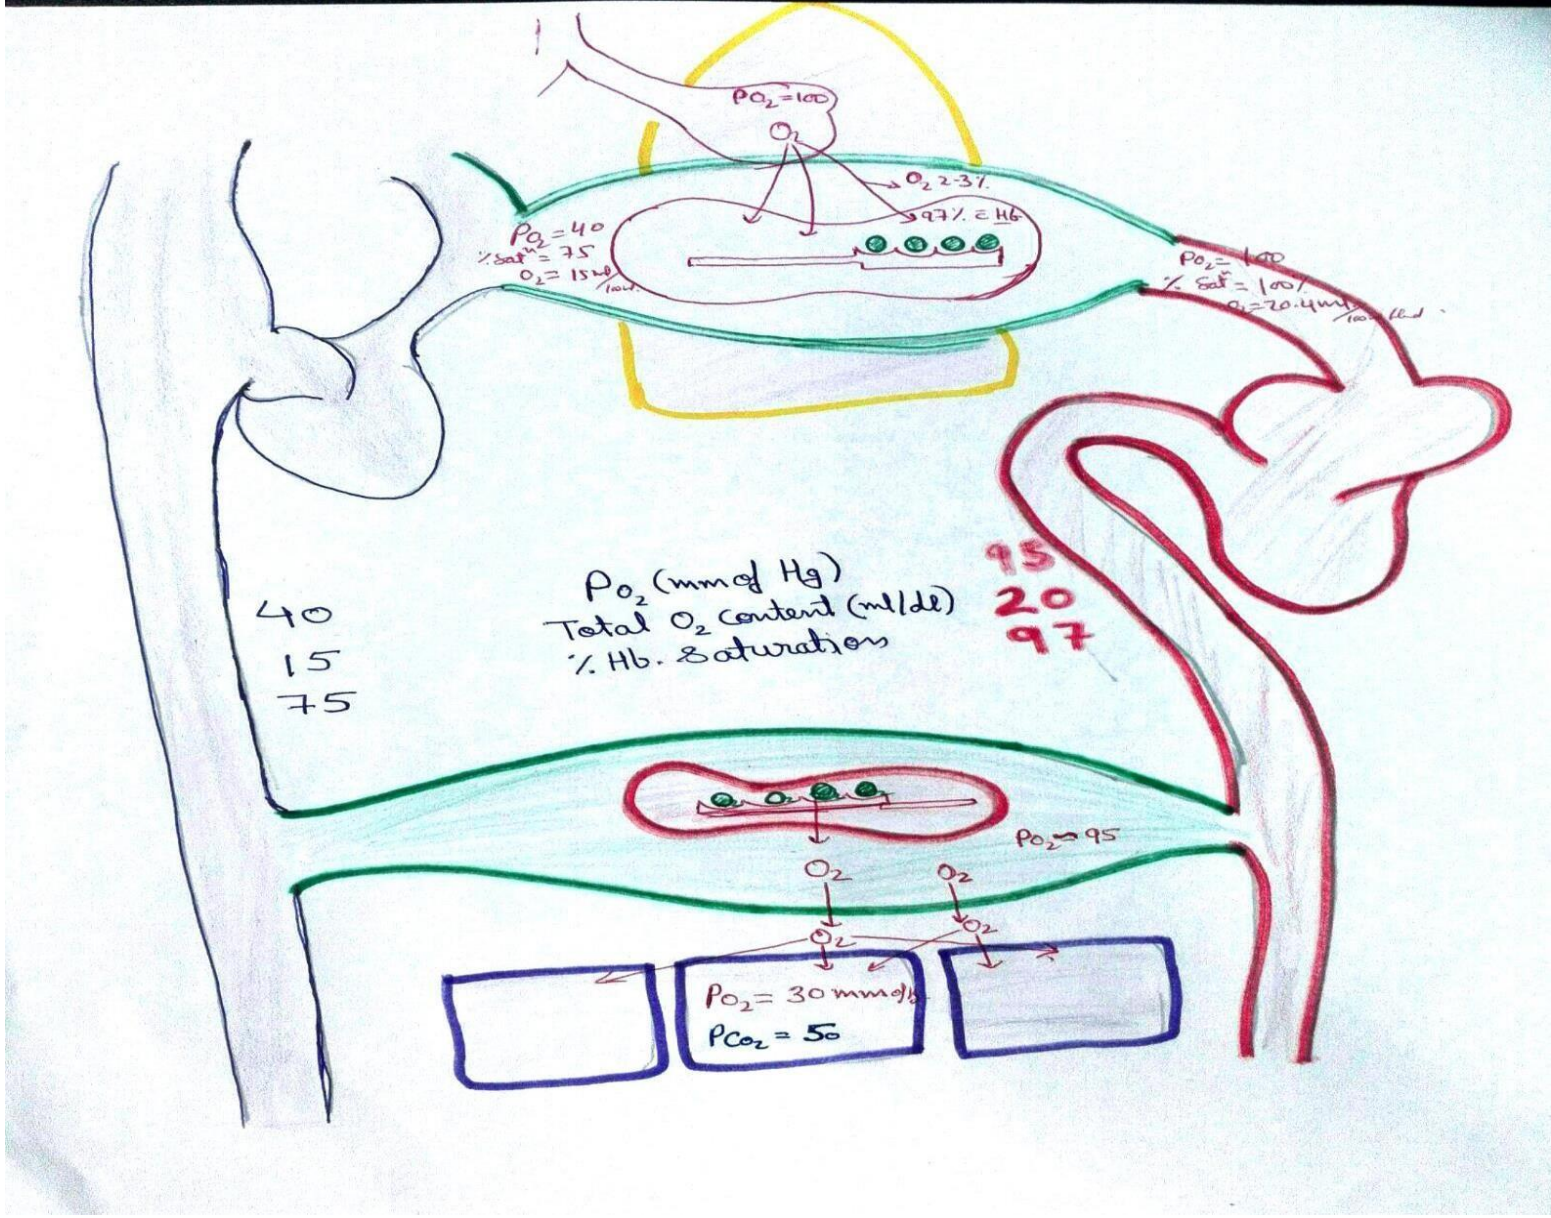 PO₂=100
O₂
O₂ 2-3%
97% c̄ Hb
PO₂=40
% Satⁿ = 75
O₂ = 15 ml/100ml
PO₂= 100
% Satⁿ = 100%
O₂=20.4ml/100ml blood
PO₂ (mm of Hg)
Total O₂ content (ml/dl)
% Hb. Saturation
95
20
97
40
15
75
PO₂ 95
O₂ O₂
O₂ O₂
PO₂= 30 mm of
PCO₂ = 50